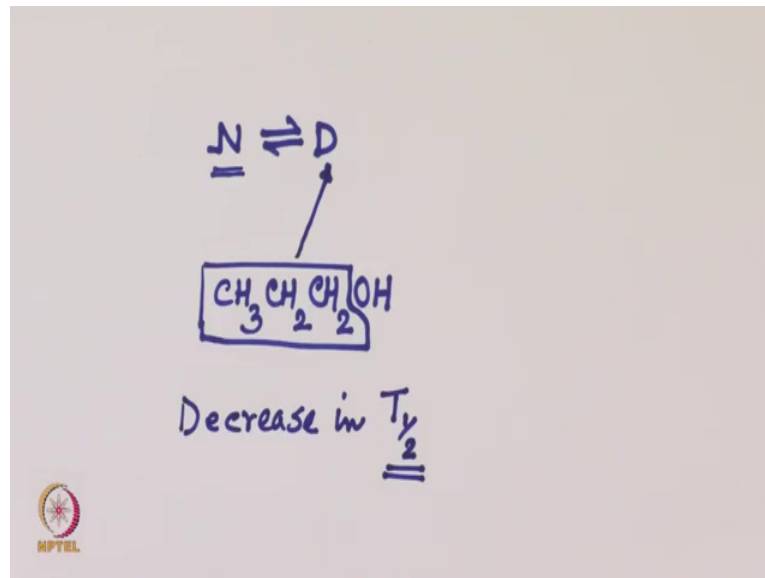 N ⇌ D
CH₃CH₂CH₂OH
Decrease in T½
NPTEL